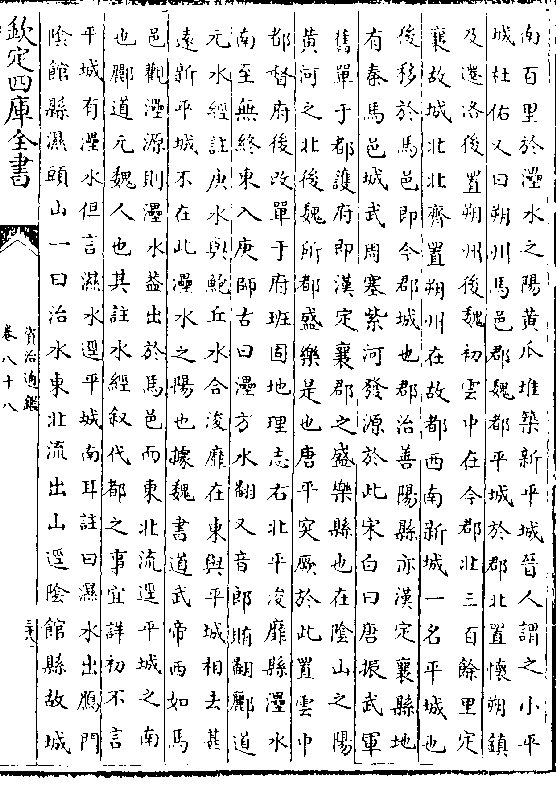 南百里於㶟水之陽黃瓜堆築新平城晉人謂之小平
城杜佑又曰朔州馬邑郡魏都平城於郡北置懷朔鎮
及遷洛後置朔州後魏初雲中在今郡北三百餘里定
襄故城北北齊置朔州在故都西南新城一名平城也
後移於馬邑即今郡城也郡治善陽縣亦漢定襄縣地
有秦馬邑城武周塞紫河發源於此宋白曰唐振武軍
舊單于都護府即漢定襄郡之盛樂縣也在陰山之陽
黃河之北後魏所都盛樂是也唐平突厥於此置雲中
都督府後改單于府班固地理志右北平浚靡縣㶟水
南至無終東入庚師古曰㶟力水翻又音郎賄翻酈道
元水經註庚水與鮑丘水合浚靡在東與平城相去甚
遠新平城不在此㶟水之陽也據魏書道武帝西如馬
邑觀㶟源則㶟水蓋出於馬邑而東北流逕平城之南
也酈道元魏人也其註水經叙代都之事宜詳初不言
平城有㶟水但言濕水逕平城南耳註曰濕水出鴈門
陰館縣濕頭山一曰治水東北流出山逕陰館縣故城
欽定四庫全書
資治通鑑
卷八十八